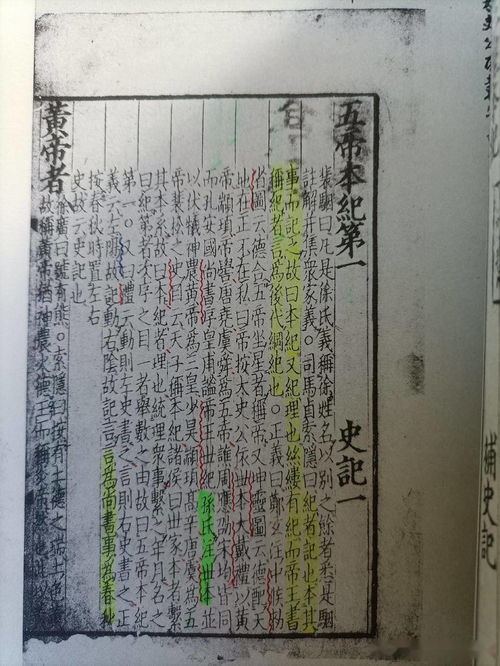 補史記
五帝本紀第一 史記一
裴駰曰凡是徐氏義稱徐姓名以別之餘者悉是駰
註解并集衆家義。司馬貞索隱曰紀者記也本其
事而記之故曰本紀又紀理也絲縷有紀而帝王書
稱紀者言為後代綱紀也。正義曰鄭玄注中候勑
省圖云德合五帝坐星者稱帝又坤靈圖云德配天
地在正不在私曰帝按太史公依世本大戴禮以黃
帝顓頊帝嚳唐堯虞舜為五帝譙周應劭宋均皆同
而孔安國尚書序皇甫謐帝王世紀孫氏注世本並
以伏犧神農黃帝為三皇少昊顓頊高辛唐虞為五
帝裴松之史目云天子稱本紀諸侯曰世家本者繫
其本系故曰本紀者理也統理衆事繫之年月名之
曰紀第者次序之目一者舉數之由故曰五帝本紀
第一。又曰禮云動則左史書之言則右史書之正
義云左陽故記動右陰故記言言為尚書事為春秋
按春秋時置左右
史故云史記也
黃帝者
徐廣曰號有熊。索隱曰按有土德之瑞土色黃
故稱黃帝猶神農火德王而稱炎帝然也此